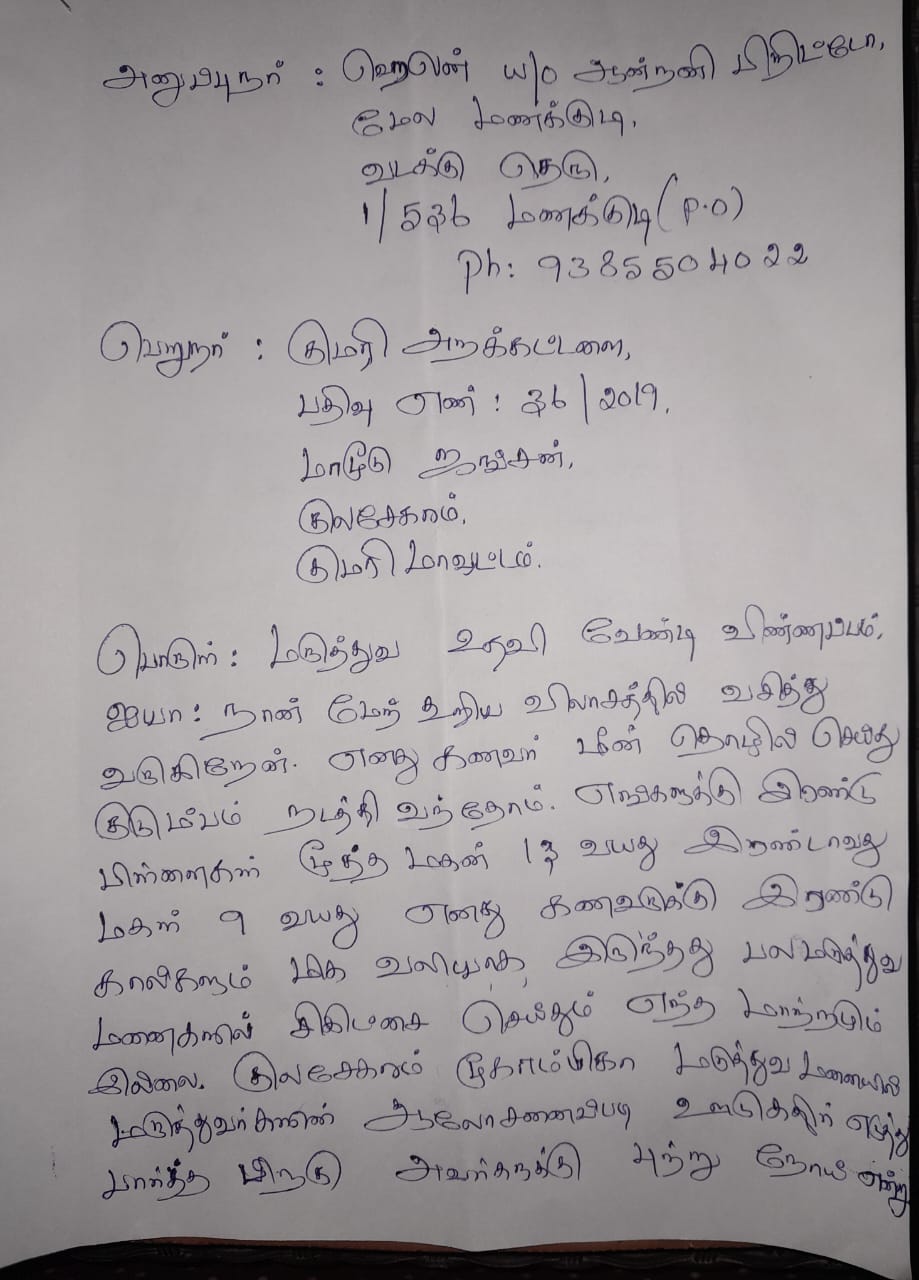 அனுப்புநர் : ஹெலன் w/o ஆன்றனி பிறிட்டோ,
மேல மணக்குடி,
வடக்கு தெரு,
1/536 மணக்குடி (P.O)
Ph: 9385504022
பெறுநர் : குமரி அறக்கட்டளை,
பதிவு எண் : 36/2019,
மாமூடு ஜங்சன்,
குலசேகரம்,
குமரி மாவட்டம்.
பொருள் : மருத்துவ உதவி வேண்டி விண்ணப்பம்.
ஐயா : நான் மேற் கூறிய விலாசத்தில் வசித்து
வருகிறேன். எனது கணவர் மீன் தொழில் செய்து
குடும்பம் நடத்தி வந்தோம். எங்களுக்கு இரண்டு
பிள்ளைகள் மூத்த மகன் 13 வயது இரண்டாவது
மகள் 9 வயது எனது கணவருக்கு இரண்டு
கால்களும் மிக வலியாக இருந்தது பல மருத்துவ
மனைகளில் சிகிட்சை செய்தும் எந்த மாற்றமும்
இல்லை. குலசேகரம் மூகாம்பிகா மருத்துவ மனையில்
மருத்துவர்களின் ஆலோசனைப்படி ஊடுகதிர் எழுத்து
பார்த்த பிறகு அவர்களுக்கு புற்று நோய் என்று